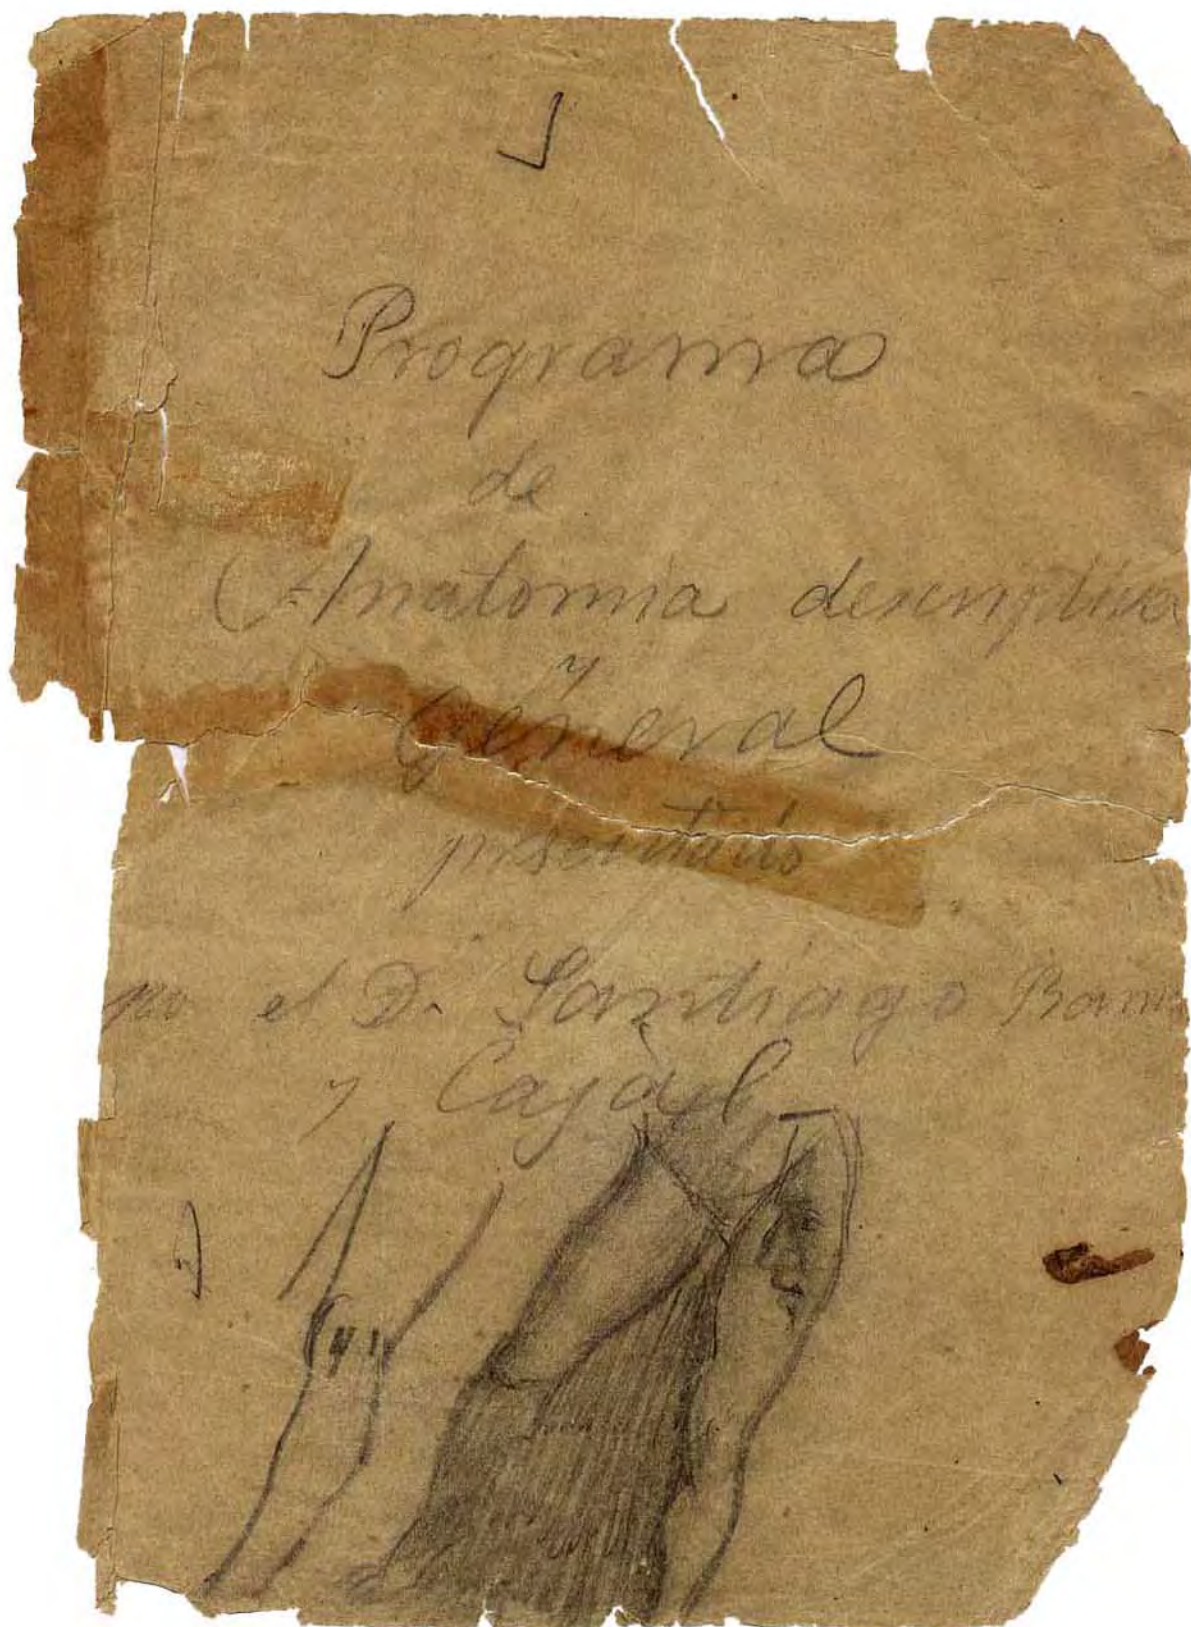 Programa
de
Anatomia descriptiva
y
General
presentado
por el D. Santiago Ramon
y Cajal